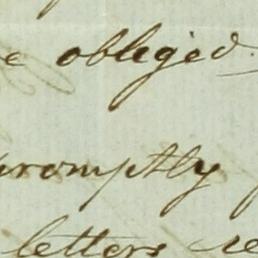 obliged.
promptly
letters re